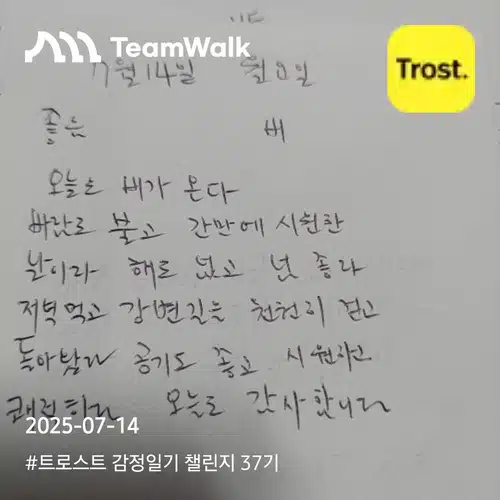 TeamWalk
Trost.
7월 14일 월요일
좋은 비
오늘도 비가 온다
바람도 불고 간만에 시원한
날이라 해도 넜고 넜 좋다
저녁먹고 강변길을 천천히 걷고
돌아봤다 공기도 좋고 시원하고
쾌적하다 오늘도 감사합니다
2025-07-14
#트로스트 감정일기 챌린지 37기